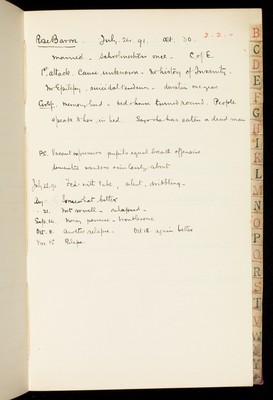 Rae Baron. July. 24. 91. aet. 30. 2-2-0
Married. Schoolmasters once. C of E.
1st attack. Cause unknown. No history of Insanity.
No Epilepsy, suicidal tendencies. duration one year
Certif. Memory bad. bed & house turned round. People
speak to her, in bed. Says she has eaten a dead man
P.S. Vacant expression pupils equal breath offensive
demented wanders aimlessly about
July 28. 91 Fed with tube, silent, dribbling.
Aug. Somewhat better
" 21. Not so well. relapsed.
Sept. 14. Noisy troublesome
Oct. 8. Another relapse. Oct 18. again better
Nov. 15 Relapse.
B
C
D
E
F
G
H
I
K
L
M
N
O
P
Q
R
S
T
V
W
Y